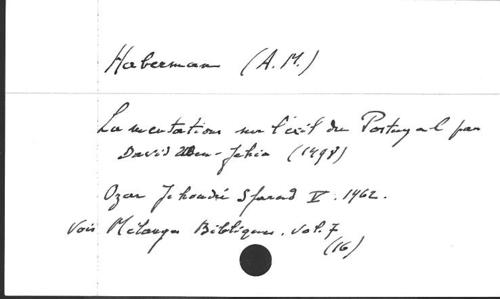 Haberman (A.M.)
Lamentations sur l'exil du Portugal par
David Ben-Jehia (1498)
Ozar Jehoudé Sfarad V. 1962.
Voir Mélanges Bibliques. vol. 7
(16)